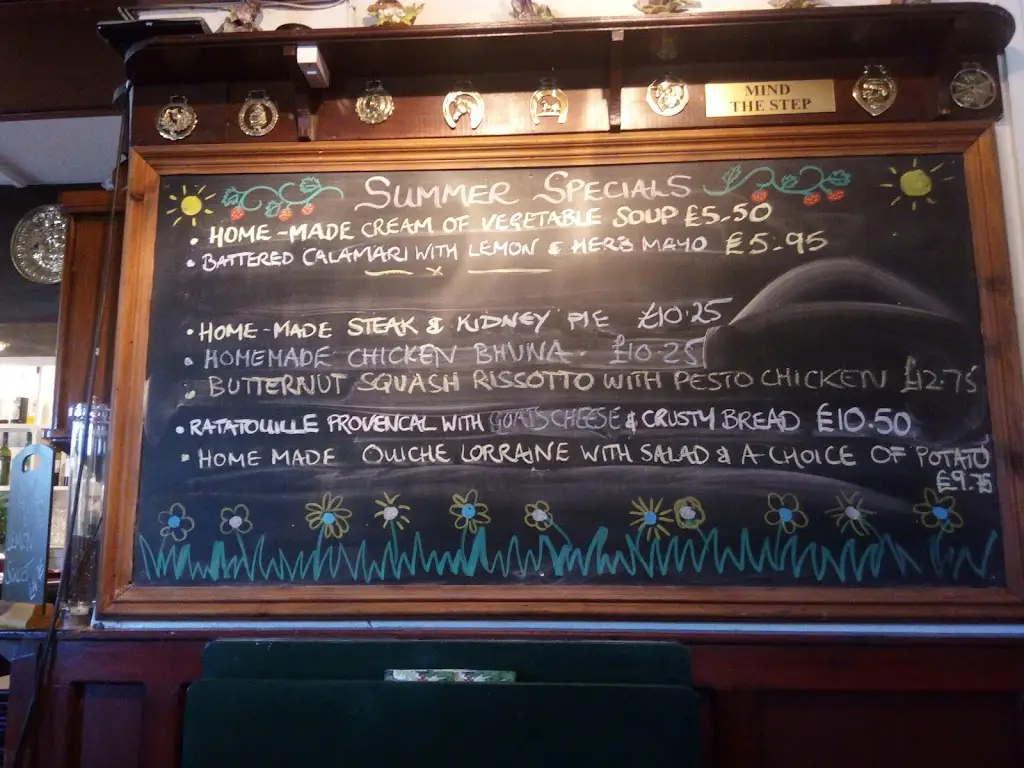 MIND
THE STEP
SUMMER SPECIALS
• HOME-MADE CREAM OF VEGETABLE SOUP £5.50
• BATTERED CALAMARI WITH LEMON & HERB MAYO £5.95
• HOME-MADE STEAK & KIDNEY PIE £10.25
• HOMEMADE CHICKEN BHUNA. £10.25
• BUTTERNUT SQUASH RISSOTTO WITH PESTO CHICKEN £12.75
• RATATOUILLE PROVENCAL WITH GOATS CHEESE & CRUSTY BREAD £10.50
• HOME MADE QUICHE LORRAINE WITH SALAD & A CHOICE OF POTATO
£9.75